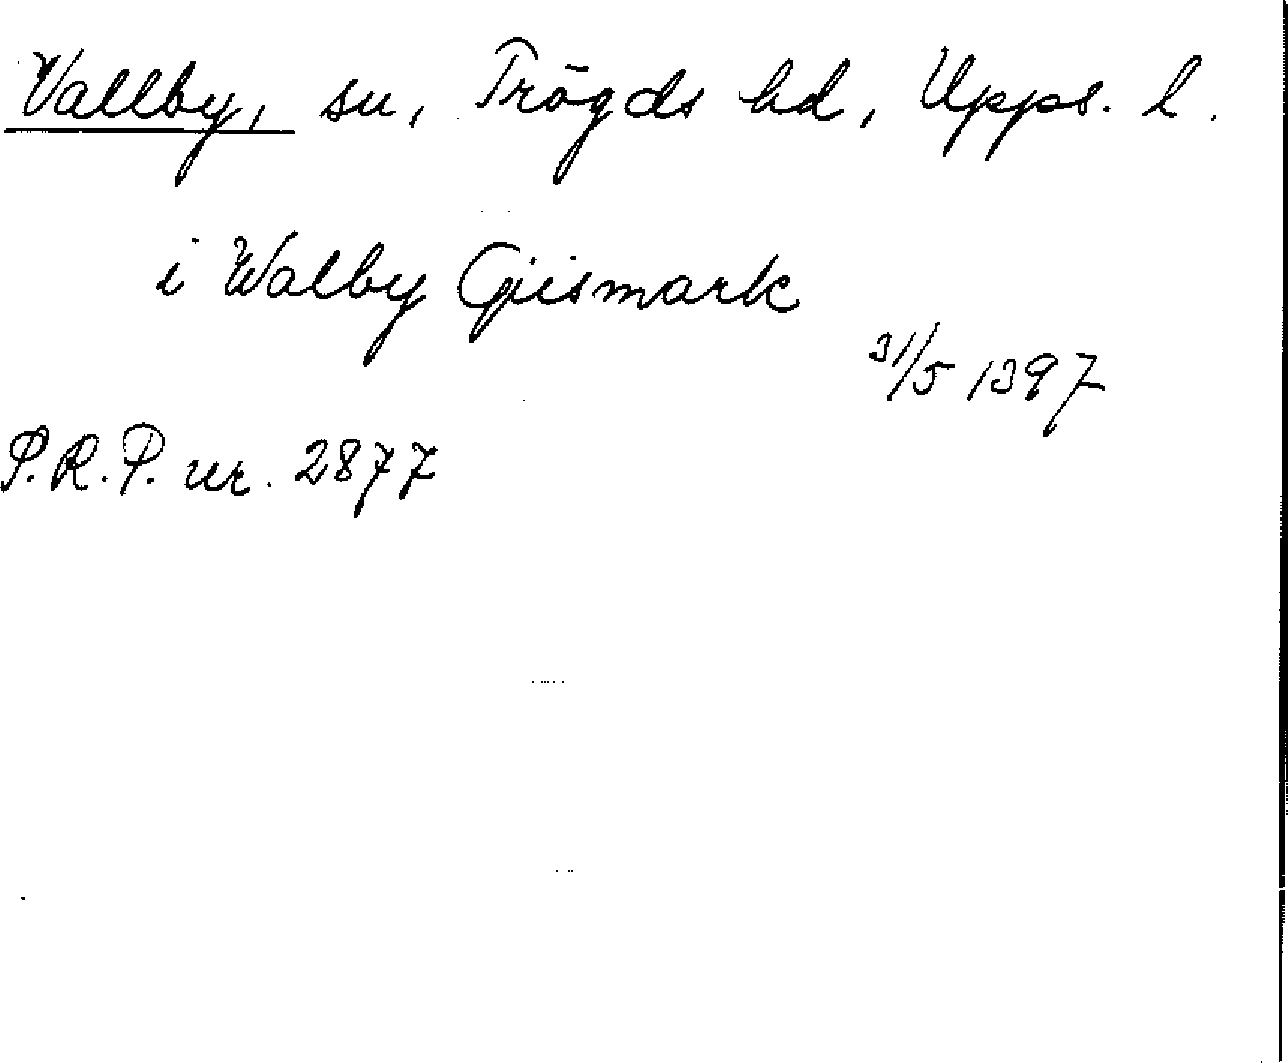 Vallby, sn, Trögds hd, Upps. l.
i Walby Gjismark
31/5 1397
P.R.P. nr. 2877